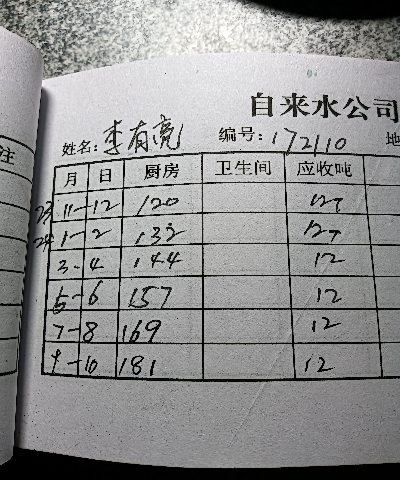 自来水公司
姓名：李有亮 编号：172110 地
注
月 日 厨房 卫生间 应收吨
23 11-12 120 12T
24 1-2 132 12T
3-4 144 12
5-6 157 12
7-8 169 12
9-10 181 12